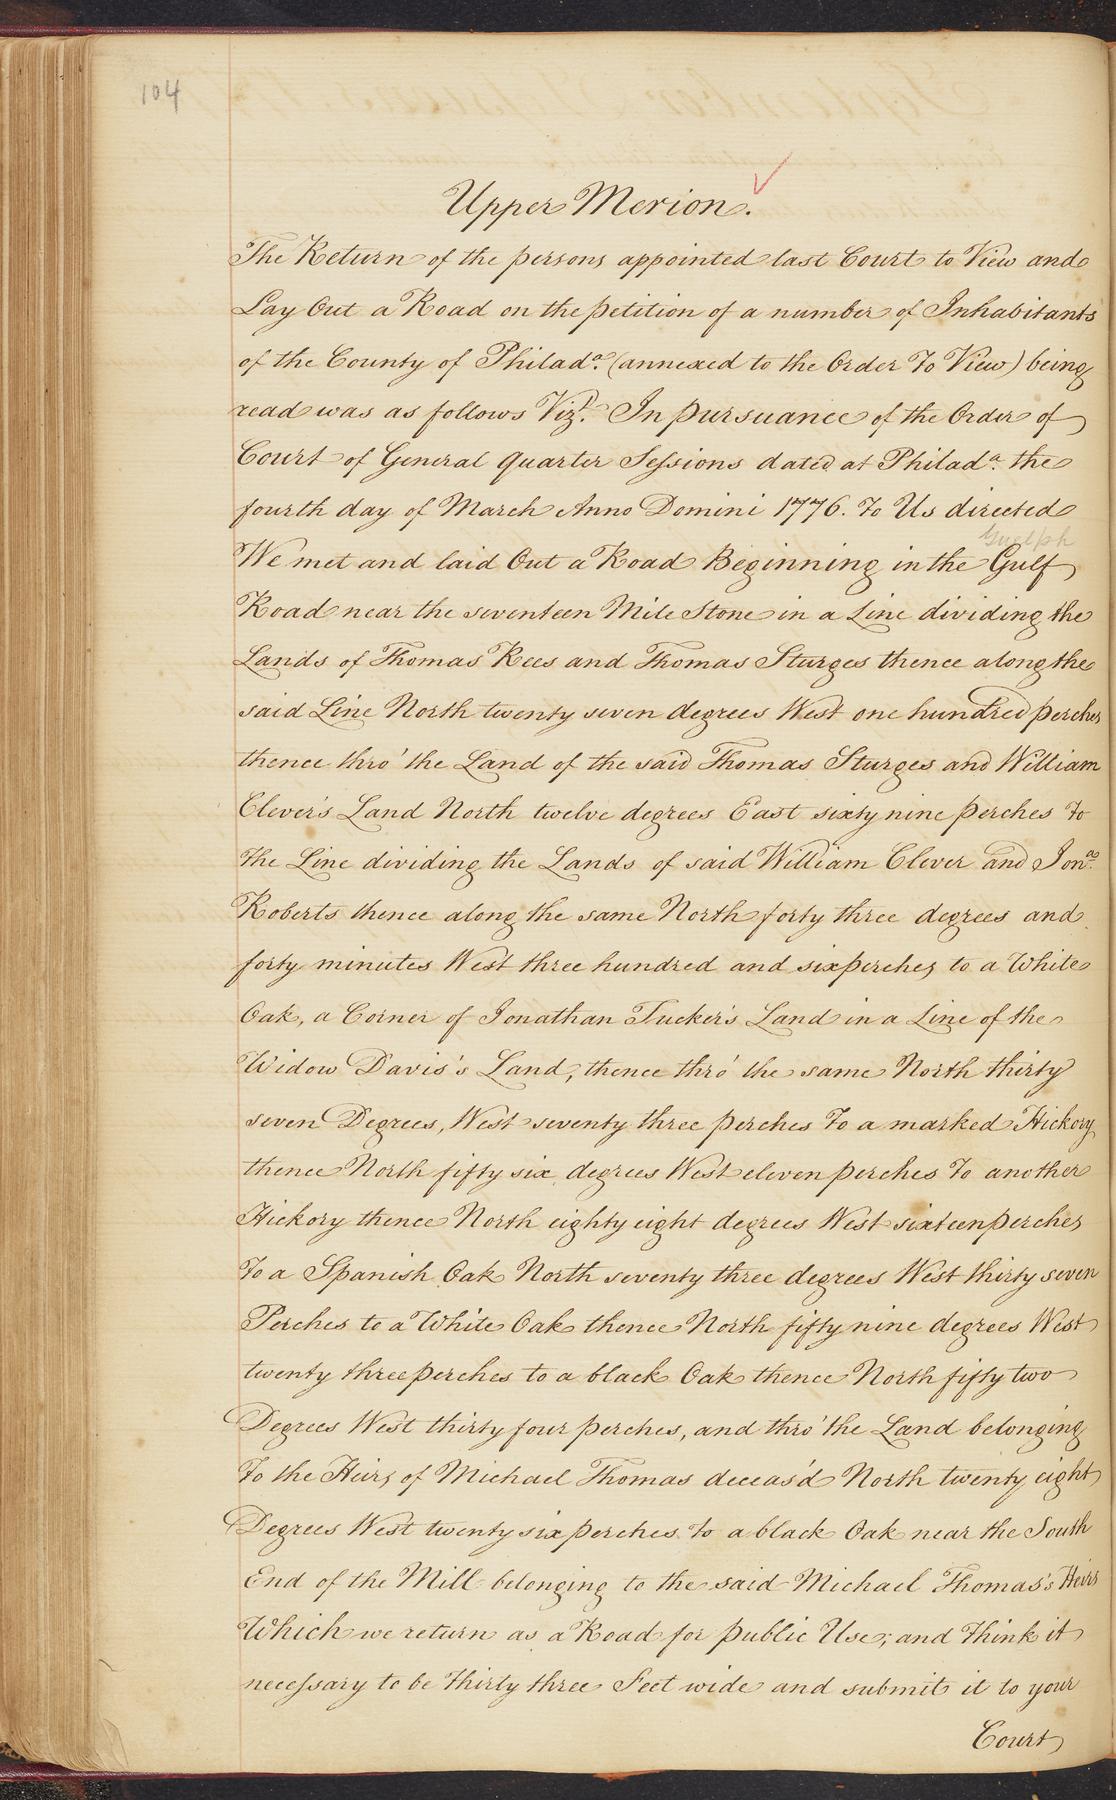 104
Upper Merion.
The Return of the persons appointed last Court to View and
Lay Out a Road on the petition of a number of Inhabitants
of the County of Philada. (annexed to the Order To View) being
read was as follows Vizt. In pursuance of the Order of
Court of General quarter Sessions dated at Philada. the
fourth day of March Anno Domini 1776. To Us directed
Guelph
We met and laid Out a Road Beginning in the Gulf
Road near the seventeen Mile Stone in a Line dividing the
Lands of Thomas Rees and Thomas Sturges thence along the
said Line North twenty seven degrees West one hundred perches
thence thro' the Land of the said Thomas Sturges and William
Clever's Land North twelve degrees East sixty nine perches To
the Line dividing the Lands of said William Clever and Jona.
Roberts thence along the same North forty three degrees and
forty minutes West three hundred and six perches to a White
Oak, a Corner of Jonathan Tucker's Land in a Line of the
Widow Davis's Land, thence thro' the same North thirty
seven Degrees, West seventy three perches To a marked Hickory
thence North fifty six degrees West eleven perches To another
Hickory thence North eighty eight degrees West sixteen perches
To a Spanish Oak North seventy three degrees West thirty seven
Perches to a White Oak thence North fifty nine degrees West
twenty three perches to a black Oak thence North fifty two
Degrees West thirty four perches, and thro' the Land belonging
To the Heirs of Michael Thomas deceas'd North twenty eight
Degrees West twenty six perches To a black Oak near the South
End of the Mill belonging to the said Michael Thomas's Heirs
Which we return as a Road for public Use; and Think it
necessary to be Thirty three Feet wide and submit it to your
Court